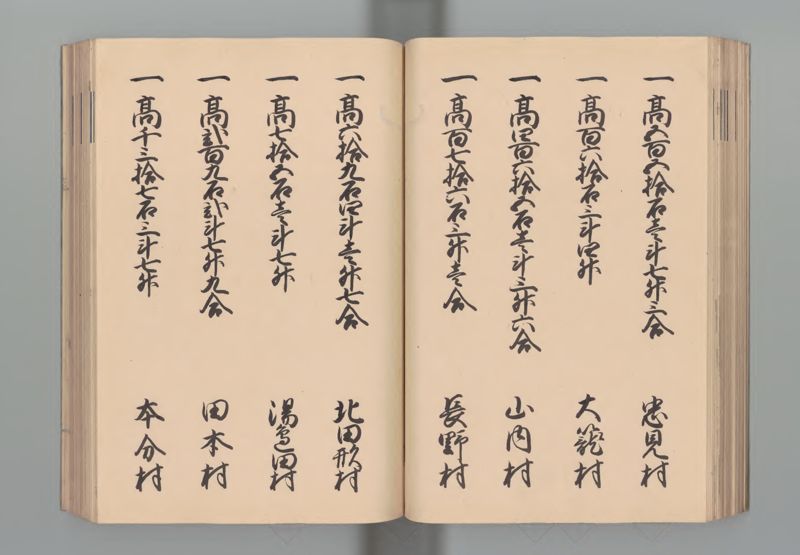 一 高五百五拾石壱斗七升三合 忠見村
一 高百六拾石三斗四升 大籠村
一 高四百六拾五石壱斗三升六合 山内村
一 高百七拾六石三升壱合 長野村
一 高六拾九石四斗壱升七合 北田形村
一 高七拾五石壱斗七升 湯辺田村
一 高弐百九石弐斗七升九合 田本村
一 高千三拾七石三斗七升 本分村